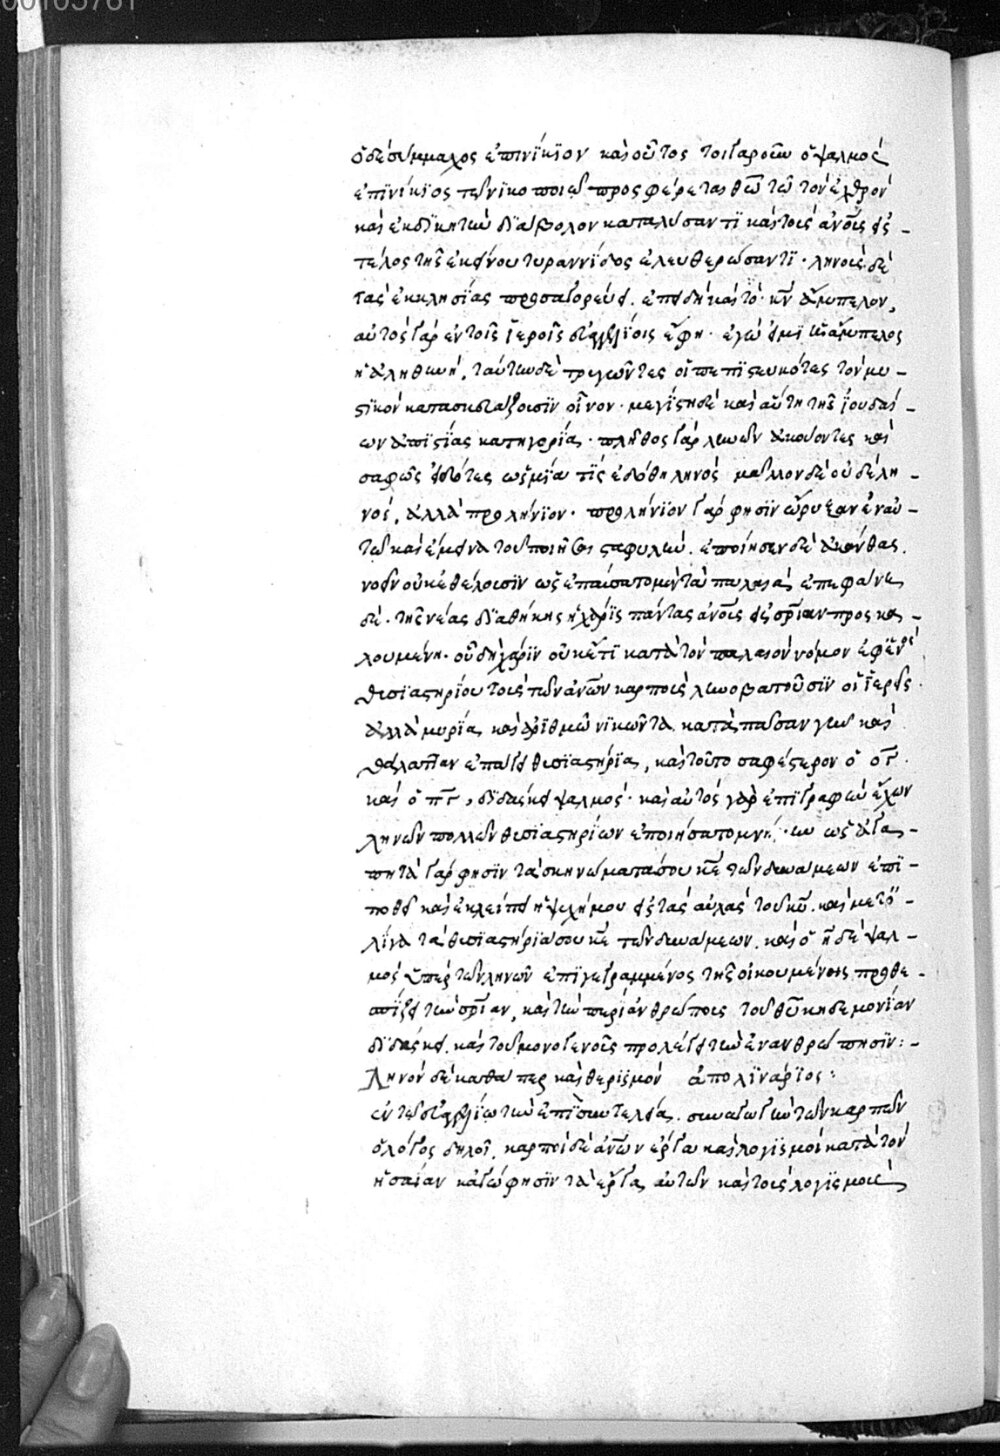 ὁ δὲ σύμμαχος ἐπινίκιον καὶ οὗτος τοιγαροῦν ὁ ψαλμὸς
ἐπινίκιος τῶ νικοποιῶ προσφέρεται θῶ τῶ τὸν ἐχθρὸν
καὶ ἐκδικητὴν διάβολον καταλύσαντι καὶ τοὺς ἀνους εἰς
τέλος τῆς ἐκείνου τυραννίδος ἐλευθερώσαντι · ληνοὺς δὲ
τὰς ἐκκλησίας προσαγορεύει. ἐπειδὴ καὶ τὸ κν ἄμπελον,
αὐτὸς γὰρ ἐν τοῖς ἱεροῖς εὐαγγελίοις ἔφη · ἐγώ εἰμι ἡ ἄμπελος
ἡ ἀληθινή, ταύτην δὲ τρυγῶντες οἱ πεπιστευκότες τὸν μυ -
στικὸν κατασκευάζουσιν οἶνον · μεγίστη δὲ καὶ αὕτη τῆς ἰουδαί -
ων ἀπιστίας κατηγορία · πλῆθος γὰρ ληνῶν ἀκούοντες καὶ
σαφῶς εἰδότες ὡς μία τις ἐδόθη ληνὸς μᾶλλον δὲ οὐδὲ λη -
νὸς, ἀλλὰ προλήνιον · προλήνιον γὰρ φησὶν ὤρυξαν ἐν αὐ -
τῶ καὶ ἔμεινα τοῦ ποιῆσαι σταφυλὴν. ἐποίησεν δὲ ἀκάνθας.
νοεῖν οὐκ ἐθέλουσιν ὡς ἐπαύσατο μὲν τὰ παλαιὰ ἐπεφάνη
δὲ · τῆς νέας διαθήκης ἡ χάρις πάντας ἀνους εἰς σριαν προσκα -
λουμένη · οὗ δὴ χάριν οὐκέτι κατὰ τὸν παλαιὸν νόμον ἐφ ἑνὸς
θυσιαστηρίου τοὺς τῶν ἀνων καρποὺς ληνοβατοῦσιν οἱ ἱερεῖς ·
ἀλλὰ μυρία καὶ ἀριθμὸν νικῶντα κατὰ πᾶσαν γῆν καὶ
θάλατταν ἐπάγει θυσιαστήρια, καὶ τοῦτο σαφέστερον ὁ ογ ·
καὶ ὁ πγ, διδάσκει ψαλμὸς · καὶ αὐτὸς γὰρ ἐπιγραφὴν ἔχων
ληνῶν πολλῶν θυσιαστηρίων ἐποιήσατο μνήμην ὡς ἀγα -
πητὰ γάρ φησιν τὰ σκηνώματά σου κε τῶν δυνάμεων ἐπι -
ποθεῖ καὶ ἐκλείπει ἡ ψυχή μου εἰς τὰς αὐλὰς τοῦ κυ. καὶ μετ ὀ -
λίγα τὰ θυσιαστήριά σου κε τῶν δυνάμεων. καὶ ὁ η δὲ ψαλ -
μὸς ὑπὲρ τῶν ληνῶν ἐπιγεγραμμένος τῆς οἰκουμένης προθε -
σπίζει τὴν σριαν, καὶ τὴν περὶ ἀνθρώπους τοῦ θυ κηδεμονίαν
διδάσκει. καὶ τοῦ μονογενοῦς προλέγει τὴν ἐνανθρώπησιν : -
ληνὸν δὲ καθάπερ καὶ θερισμὸν ἀπολινάριος :
ἐν τῶ εὐαγγελίω τὴν ἐπὶ συντελεία. συναγωγὴν τῶν καρπῶν
ὁ λόγος δηλοῖ. καρποὶ δὲ ἀνων ἔργα καὶ λογισμοὶ κατὰ τὸν
ἡσαίαν κἀγώ φησιν τὰ ἔργα αὐτῶν καὶ τοὺς λογισμοὺς